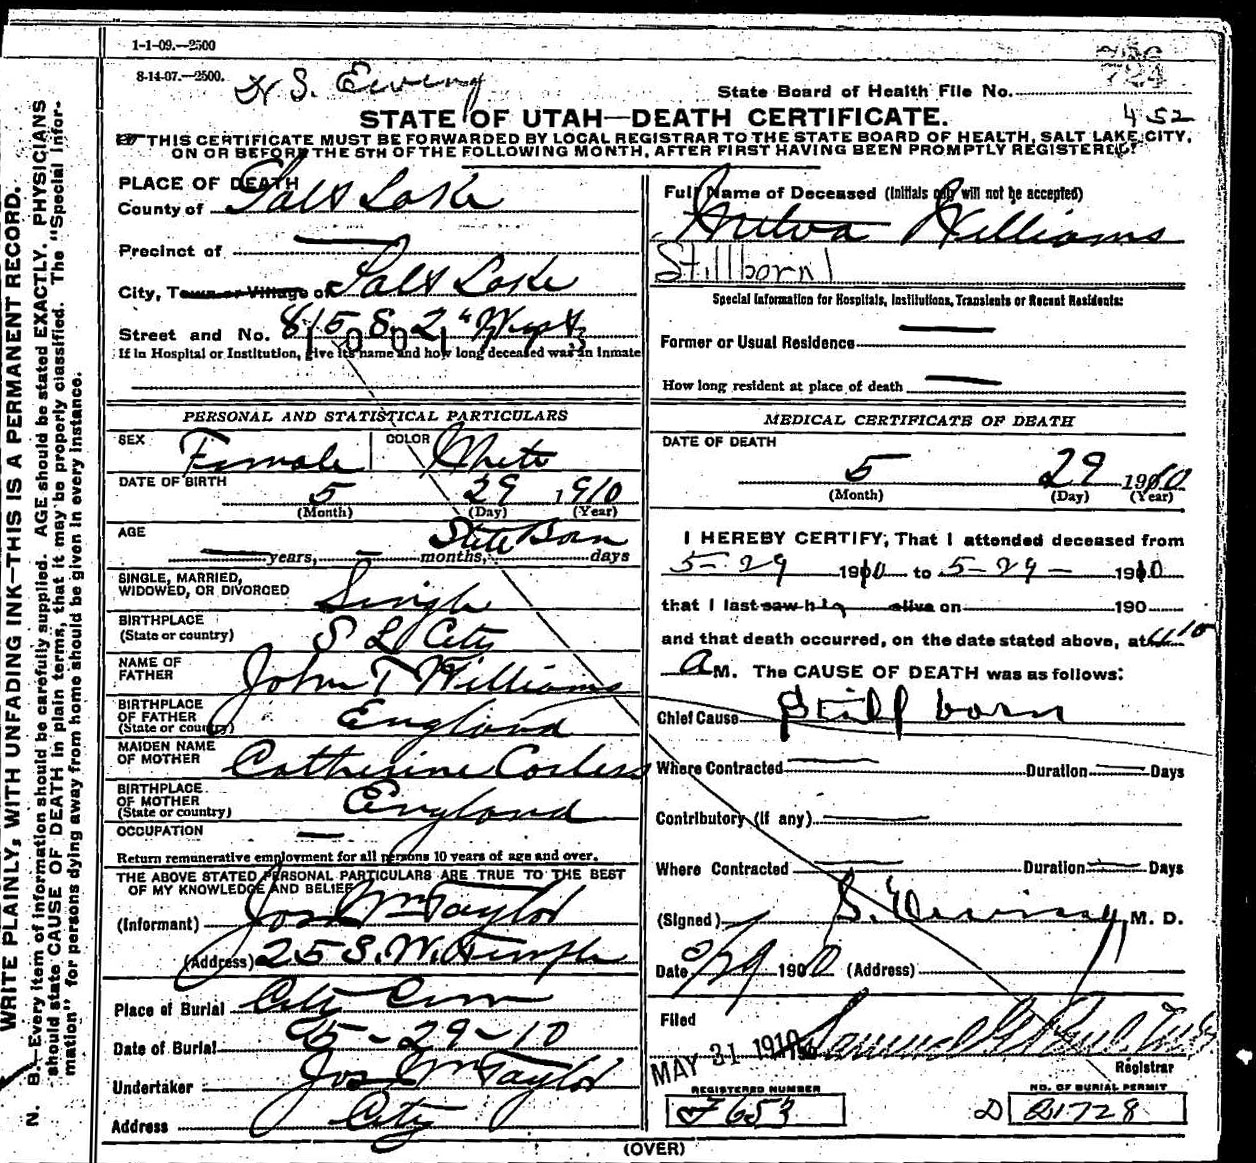 1-1-09.—2500
8-14-07.—2500.
S. Ewing
724
State Board of Health File No.
452
STATE OF UTAH—DEATH CERTIFICATE.
THIS CERTIFICATE MUST BE FORWARDED BY LOCAL REGISTRAR TO THE STATE BOARD OF HEALTH, SALT LAKE CITY,
ON OR BEFORE THE 5TH OF THE FOLLOWING MONTH, AFTER FIRST HAVING BEEN PROMPTLY REGISTERED.
WRITE PLAINLY, WITH UNFADING INK—THIS IS A PERMANENT RECORD.
N. B.—Every item of information should be carefully supplied. AGE should be stated EXACTLY. PHYSICIANS
should state CAUSE OF DEATH in plain terms, that it may be properly classified. The "Special Infor-
mation" for persons dying away from home should be given in every instance.
PLACE OF DEATH
County of Salt Lake
Precinct of —
City, Town or Village of Salt Lake
Street and No. 815 So 2" West
If in Hospital or Institution, give its name and how long deceased was an inmate
PERSONAL AND STATISTICAL PARTICULARS
SEX Female COLOR White
DATE OF BIRTH 5 29 1910
(Month) (Day) (Year)
AGE Still Born
— years, — months, days
SINGLE, MARRIED,
WIDOWED, OR DIVORCED Single
BIRTHPLACE
(State or country) S L City
NAME OF
FATHER John T Williams
BIRTHPLACE
OF FATHER
(State or country) England
MAIDEN NAME
OF MOTHER Catherine Corless
BIRTHPLACE
OF MOTHER
(State or country) England
OCCUPATION —
Return remunerative employment for all persons 10 years of age and over.
THE ABOVE STATED PERSONAL PARTICULARS ARE TRUE TO THE BEST
OF MY KNOWLEDGE AND BELIEF
(Informant) Jos Wm Taylor
(Address) 25 S. W. Temple
Place of Burial City Cem
Date of Burial 5-29-10
Undertaker Jos Wm Taylor
Address City
Full Name of Deceased (Initials only will not be accepted)
Williams
Stillborn
Special Information for Hospitals, Institutions, Transients or Recent Residents:
Former or Usual Residence —
How long resident at place of death —
MEDICAL CERTIFICATE OF DEATH
DATE OF DEATH
5 29 1910
(Month) (Day) (Year)
I HEREBY CERTIFY, That I attended deceased from
5-29 1910 to 5-29- 1910
that I last saw h alive on 190
and that death occurred, on the date stated above, at
A M. The CAUSE OF DEATH was as follows:
Chief Cause Still born
Where Contracted — Duration — Days
Contributory (if any) —
Where Contracted — Duration — Days
(Signed) S. Ewing M. D.
Date 5/29 1910 (Address)
Filed
MAY 31 1910
Registrar
REGISTERED NUMBER
7653
NO. OF BURIAL PERMIT
D 21728
(OVER)